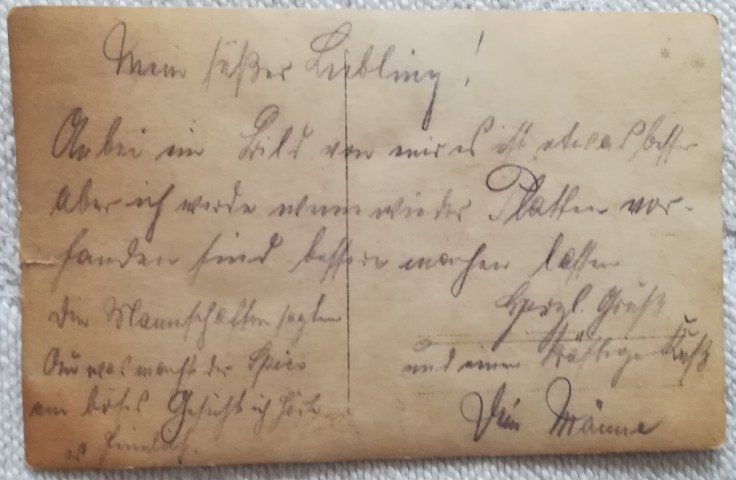 Mein süßer Liebling!
Anbei ein Bild von mir es ist etwas besser
Aber ich werde wenn wieder Platten vor-
handen sind bessere machen lassen
Herzl. Gruß
und einen kräftigen Kuß
Dein Männe
Die Mannschaften sagten
was macht der Spies
ein böses Gesicht ich hörte
es heimlich.